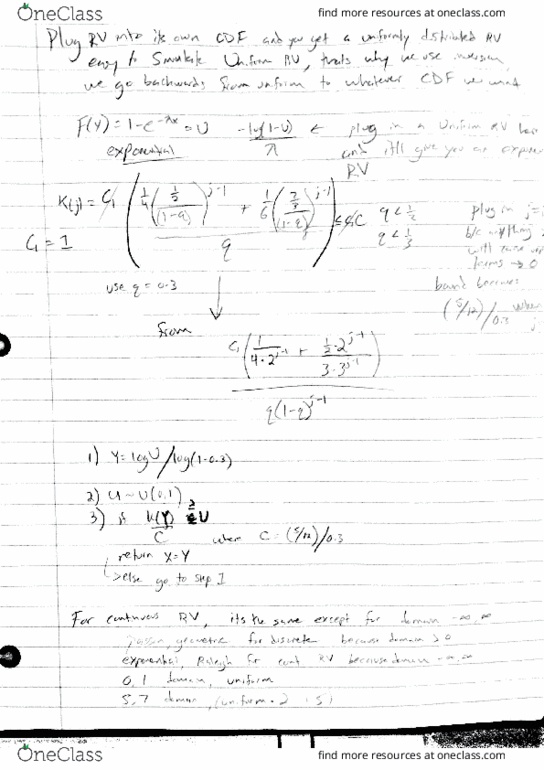 OneClass
find more resources at oneclass.com
Plug RV into its own CDF and you get a uniformly distributed RV
easy to Simulate Uniform RV, thats why we use inversion,
we go backwards from uniform to whatever CDF we want
F(Y) = 1-e^-λx = U   -ln(1-U)/λ ← plug in a Uniform RV
exponential   and itll give you an
RV
K(j) = C₁ (1/4 (1/2/(1-q))^j-1 + 1/6 (2/3/(1-q))^j-1)/q ≤ C   q < 1/2
C₁ = 1   q < 1/3
plug in j=
b/c anything
will
terms → 0
use q = 0.3
bound becomes
(5/12)/0.3 when
from
C₁ (1/4·2^j-1 + 1/2·2^j-1/3·3^j-1)
q(1-q)^j-1
1) Y = logU/log(1-0.3)
2) U ~ U(0,1)
3) is K(Y)/C ≥ U   where C = (5/12)/0.3
return X=Y
else go to step 1
For continuous RV, its the same except for domain -∞,∞
geometric for discrete because domain > 0
exponential, for cont RV because domain -∞,∞
0,1 domain, uniform
5,7 domain, (uniform · 2 + 5)
OneClass
find more resources at oneclass.com